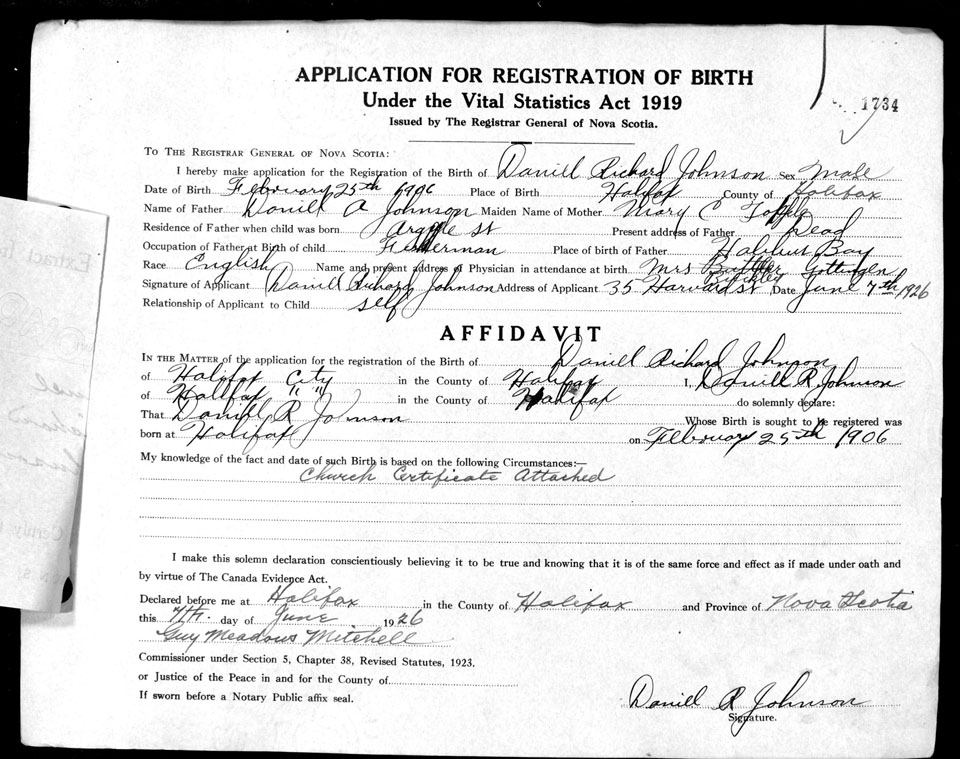 APPLICATION FOR REGISTRATION OF BIRTH
Under the Vital Statistics Act 1919
1734
Issued by The Registrar General of Nova Scotia.
TO THE REGISTRAR GENERAL OF NOVA SCOTIA:
I hereby make application for the Registration of the Birth of Danill Richard Johnson Sex Male
Date of Birth February 25th 1906 Place of Birth Halifax County of Halifax
Name of Father Danill A Johnson Maiden Name of Mother Mary C
Residence of Father when child was born Argyle St Present address of Father Dead
Occupation of Father at Birth of child Fisherman Place of birth of Father Bay
Race English Name and present address of Physician in attendance at birth Mrs Gottingen
Signature of Applicant Danill Richard Johnson Address of Applicant 35 Harvard St Date June 7th 1926
Relationship of Applicant to Child self
AFFIDAVIT
IN THE MATTER of the application for the registration of the Birth of Danill Richard Johnson
of Halifax City in the County of Halifax I, Danill R Johnson
of Halifax " " in the County of Halifax do solemnly declare:
That Danill R Johnson Whose Birth is sought to be registered was
born at Halifax on February 25th 1906
My knowledge of the fact and date of such Birth is based on the following Circumstances:—
Church Certificate Attached
I make this solemn declaration conscientiously believing it to be true and knowing that it is of the same force and effect as if made under oath and
by virtue of The Canada Evidence Act.
Declared before me at Halifax in the County of Halifax and Province of Nova Scotia
this 7th. day of June 1926
Guy Meadows Mitchell
Commissioner under Section 5, Chapter 38, Revised Statutes, 1923.
or Justice of the Peace in and for the County of
If sworn before a Notary Public affix seal.
Danill R Johnson
Signature.